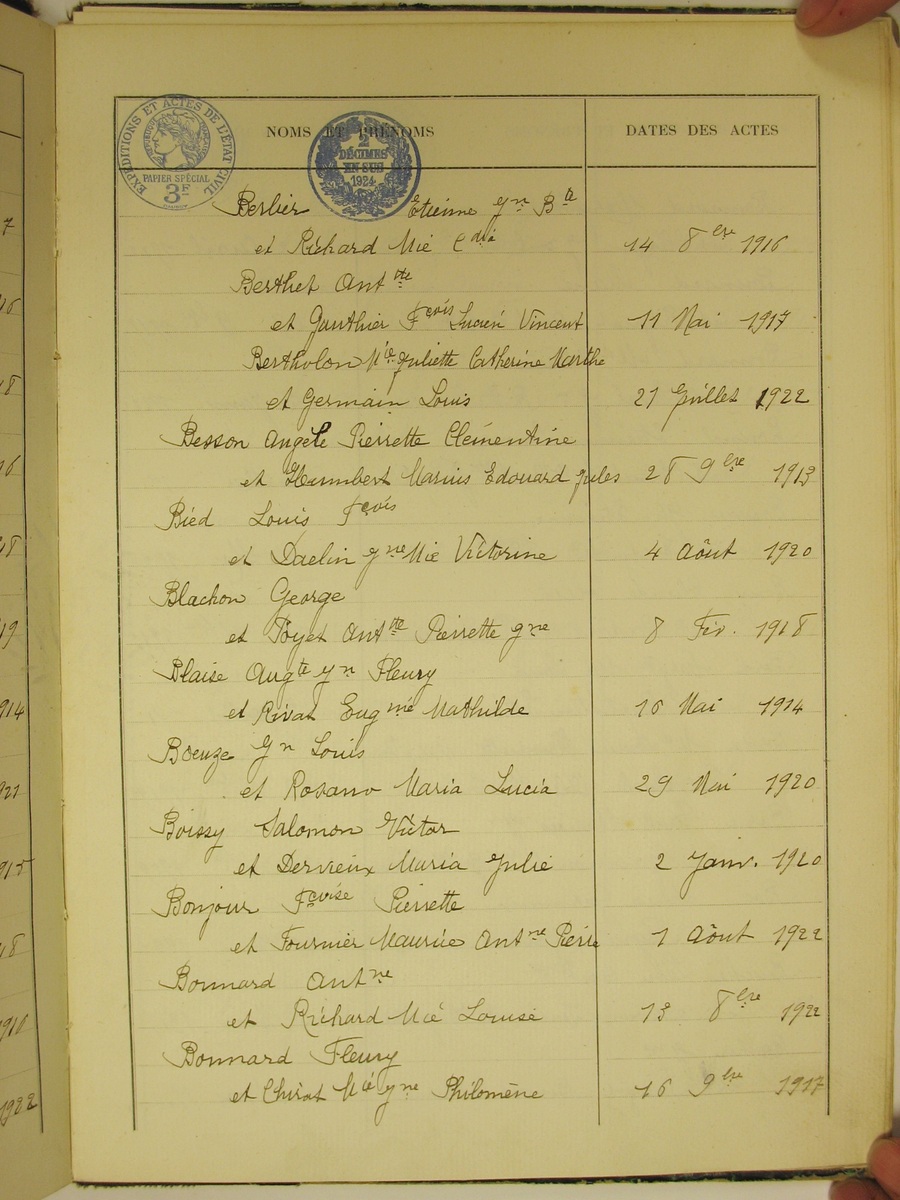 NOMS ET PRÉNOMS DATES DES ACTES
EXPÉDITIONS ET ACTES DE L'ÉTAT CIVIL
RÉPUBLIQUE FRANÇAISE
PAPIER SPÉCIAL
3F
2
DÉCIMES
EN SUS
1924
Berlier Etienne Jn Bte
et Richard Mie Cdia 14 8bre 1916
Berthet Anttte
et Gauthier Fçois Lucien Vincent 11 Mai 1917
Bertholon Mie Juliette Catherine Marthe
et Germain Louis 21 Juillet 1922
Besson Angele Pierrette Clémentine
et Humbert Marius Edouard Jules 28 9bre 1913
Bied Louis Fçois
et Daelin Jne Mie Victorine 4 Août 1920
Blachon George
et Poyet Anttte Pierrette Jne 8 Fév. 1918
Blaise Augte Jn Fleury
et Rivat Eugnie Mathilde 16 Mai 1914
Boeuze Jn Louis
et Rosano Maria Lucia 29 Mai 1920
Boissy Salomon Victor
et Dervieux Maria Julie 2 Janv. 1920
Bonjour Fçoise Pierrette
et Fournier Maurice Antne Pierre 1 Août 1922
Bonnard Antne
et Richard Mie Louise 13 8bre 1922
Bonnard Fleury
et Chirat Mie Jne Philomène 16 9bre 1917
7
16
18
16
18
19
914
921
915
18
1910
1922